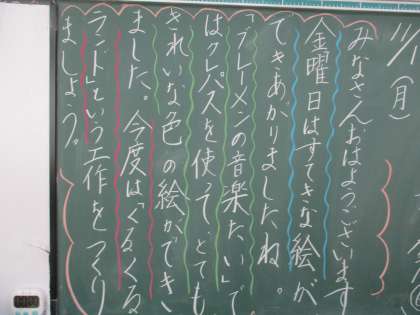 11/1(月)
みなさんおはようございます
金曜日はすてきな絵が
できあがりましたね。
「ブレーメンの音楽たい」で
はクレパスを使って、とても
きれいな色の絵ができ
ました。今度は「くるくる
ランド」という工作をつくり
ましょう。